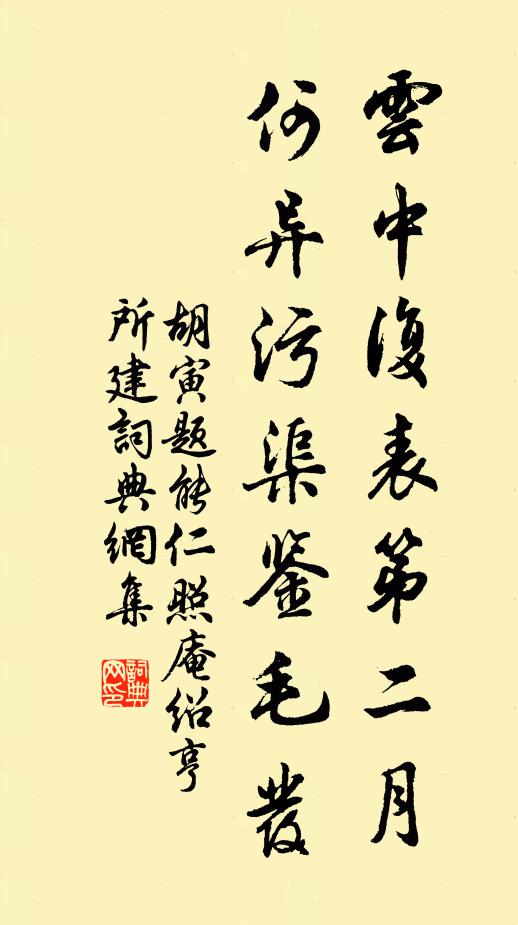 雲中復表第二月
何异污渠鉴毛發
胡寅題能仁照庵绍亨
所建詞典網集
詞典网印